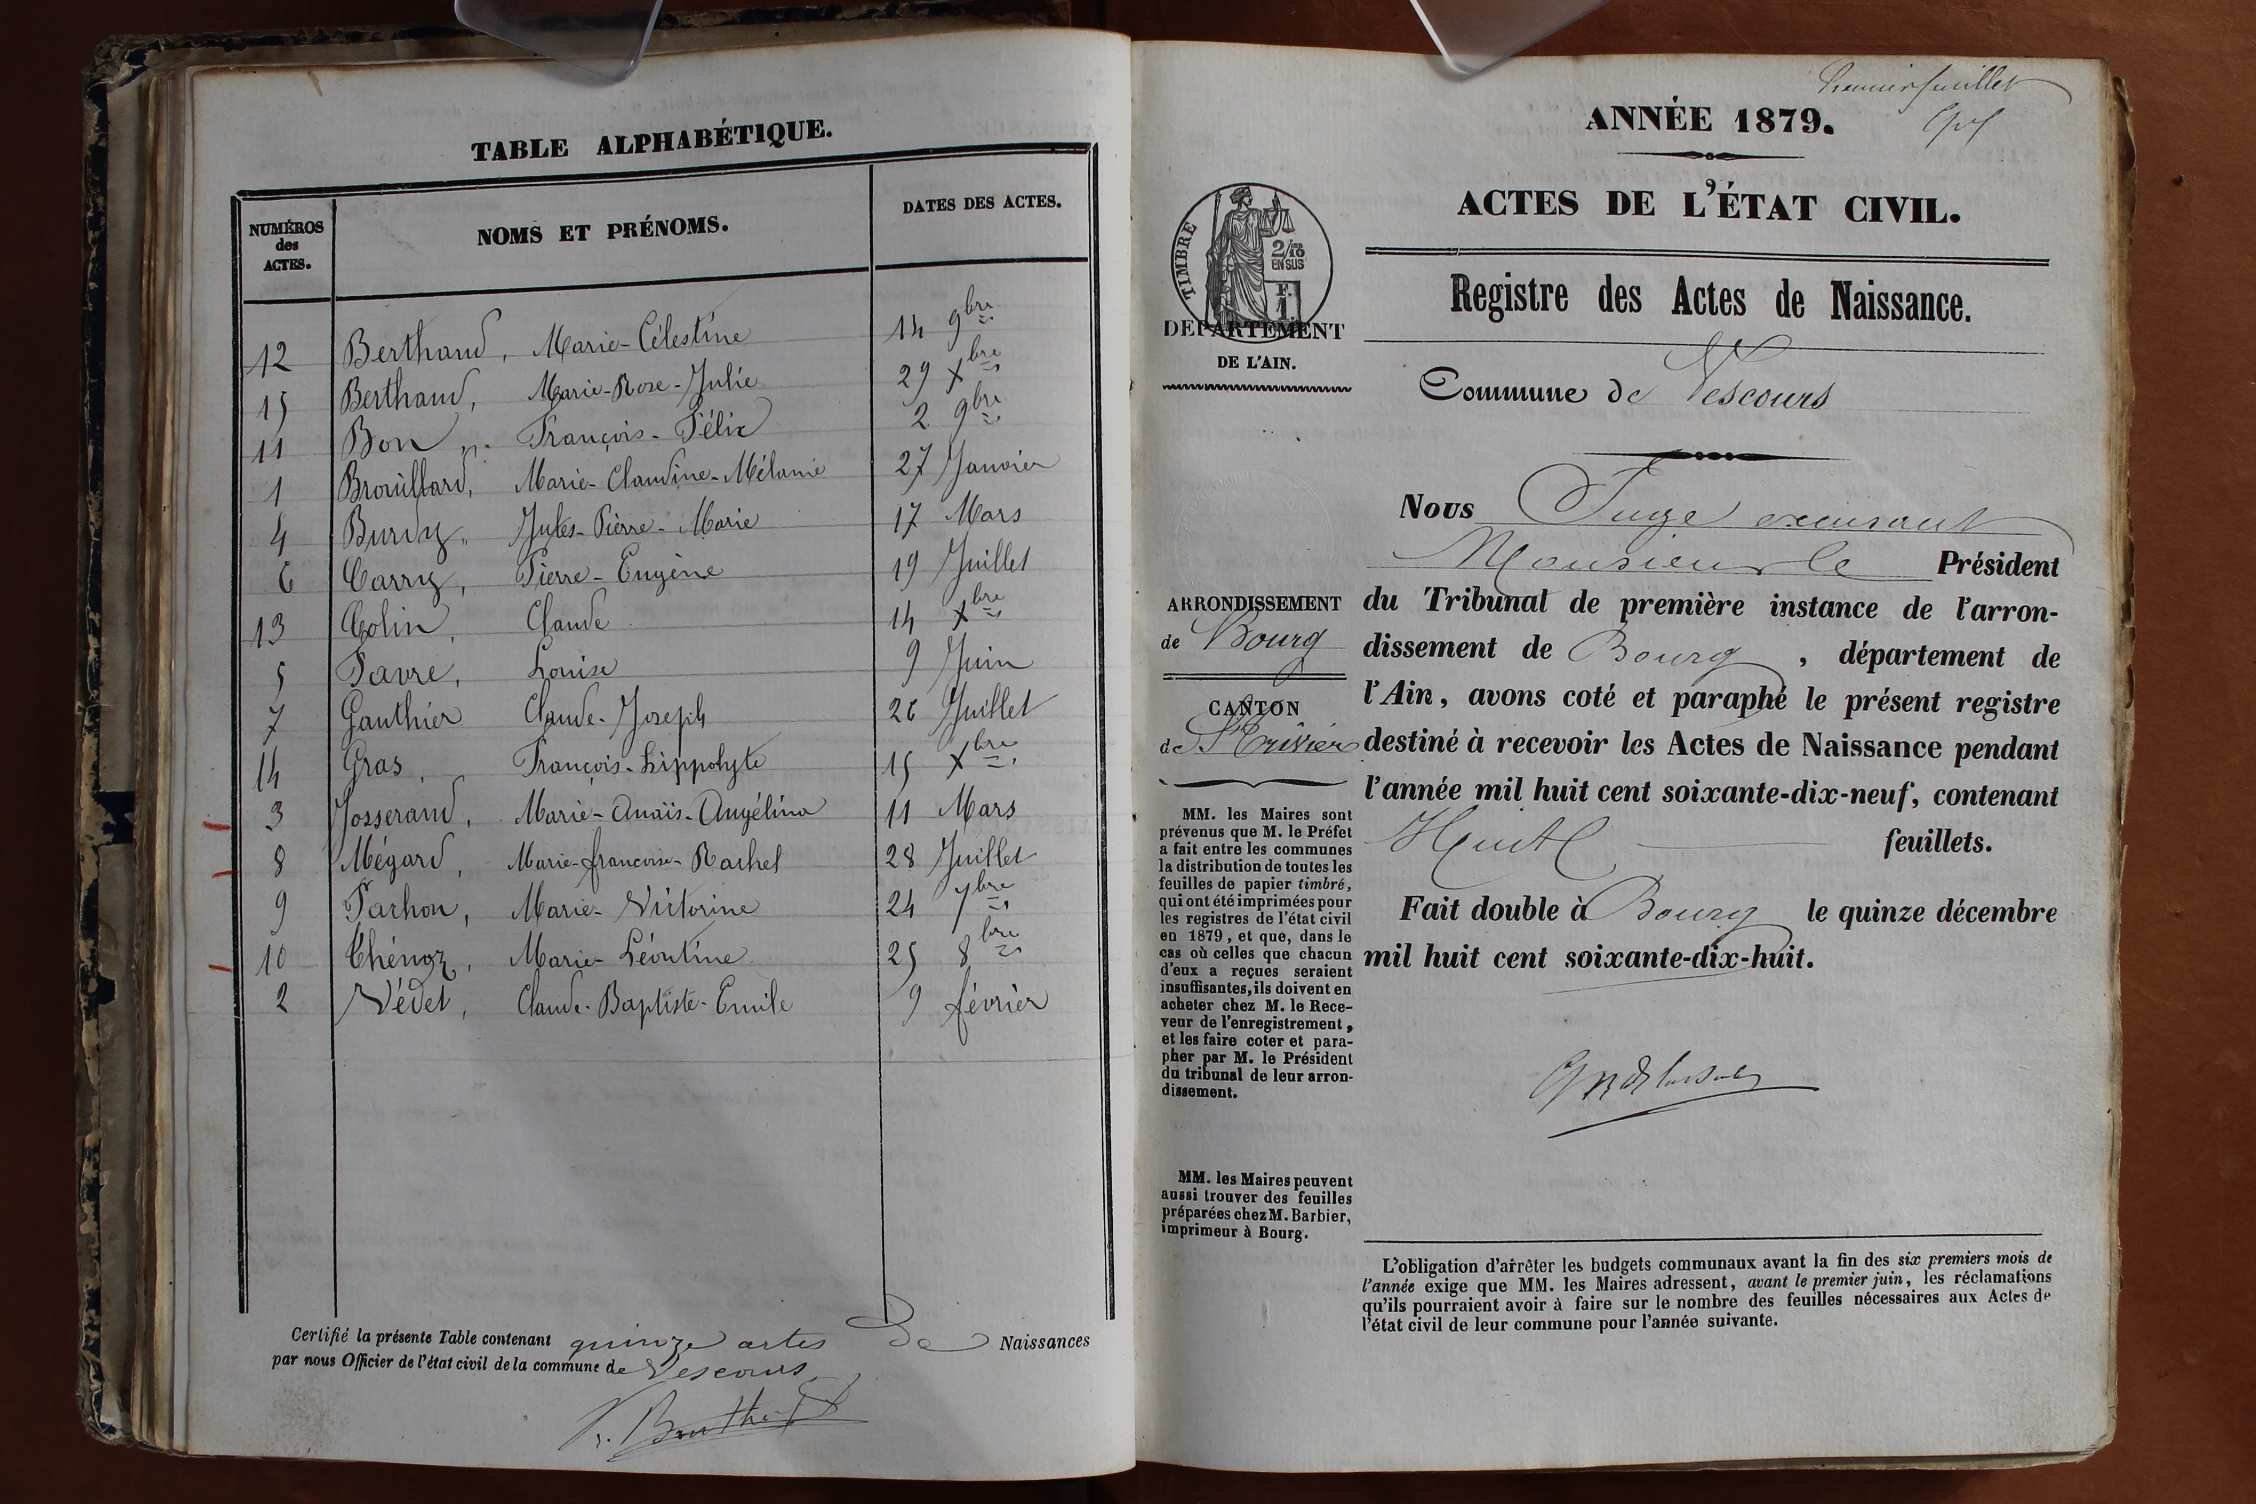 TABLE ALPHABÉTIQUE.
NUMÉROS des ACTES.
NOMS ET PRÉNOMS.
DATES DES ACTES.
12 Berthaud, Marie-Célestine 14 9bre
15 Berthaud, Marie-Rose-Julie 29 Xbre
11 Bon, François-Félix 2 9bre
1 Brouillard, Marie-Claudine-Mélanie 27 Janvier
4 Burdy, Jules-Pierre-Marie 17 Mars
6 Carry, Pierre-Eugène 19 Juillet
13 Colin, Claude 14 Xbre
5 Favre, Louise 9 Juin
7 Gauthier Claude-Joseph 26 Juillet
14 Gras, François-hippolyte 15 Xbre
3 Josserand, Marie-Anaïs-Angélina 11 Mars
8 Mégard, Marie-françoise-Rachel 28 Juillet
9 Pachon, Marie-Victorine 24 7bre
10 Chénoz, Marie-Léontine 25 8bre
2 Védet, Claude-Baptiste-Emile 9 février
Certifié la présente Table contenant quinze actes de Naissances
par nous Officier de l'état civil de la commune de Vescours
Premier feuillet
ANNÉE 1879.
ACTES DE L'ÉTAT CIVIL.
Registre des Actes de Naissance.
TIMBRE
2/10 EN SUS
F. 1
DÉPARTEMENT
DE L'AIN.
Commune de Vescours
Nous Juge excusant
Monsieur le Président
du Tribunal de première instance de l'arron-
dissement de Bourg, département de
l'Ain, avons coté et paraphé le présent registre
destiné à recevoir les Actes de Naissance pendant
l'année mil huit cent soixante-dix-neuf, contenant
Huit feuillets.
Fait double à Bourg le quinze décembre
mil huit cent soixante-dix-huit.
ARRONDISSEMENT
de Bourg
CANTON
de St Trivier
MM. les Maires sont
prévenus que M. le Préfet
a fait entre les communes
la distribution de toutes les
feuilles de papier timbré,
qui ont été imprimées pour
les registres de l'état civil
en 1879, et que, dans le
cas où celles que chacun
d'eux a reçues seraient
insuffisantes, ils doivent en
acheter chez M. le Rece-
veur de l'enregistrement,
et les faire coter et para-
pher par M. le Président
du tribunal de leur arron-
dissement.
MM. les Maires peuvent
aussi trouver des feuilles
préparées chez M. Barbier,
imprimeur à Bourg.
L'obligation d'arrêter les budgets communaux avant la fin des six premiers mois de
l'année exige que MM. les Maires adressent, avant le premier juin, les réclamations
qu'ils pourraient avoir à faire sur le nombre des feuilles nécessaires aux Actes de
l'état civil de leur commune pour l'année suivante.